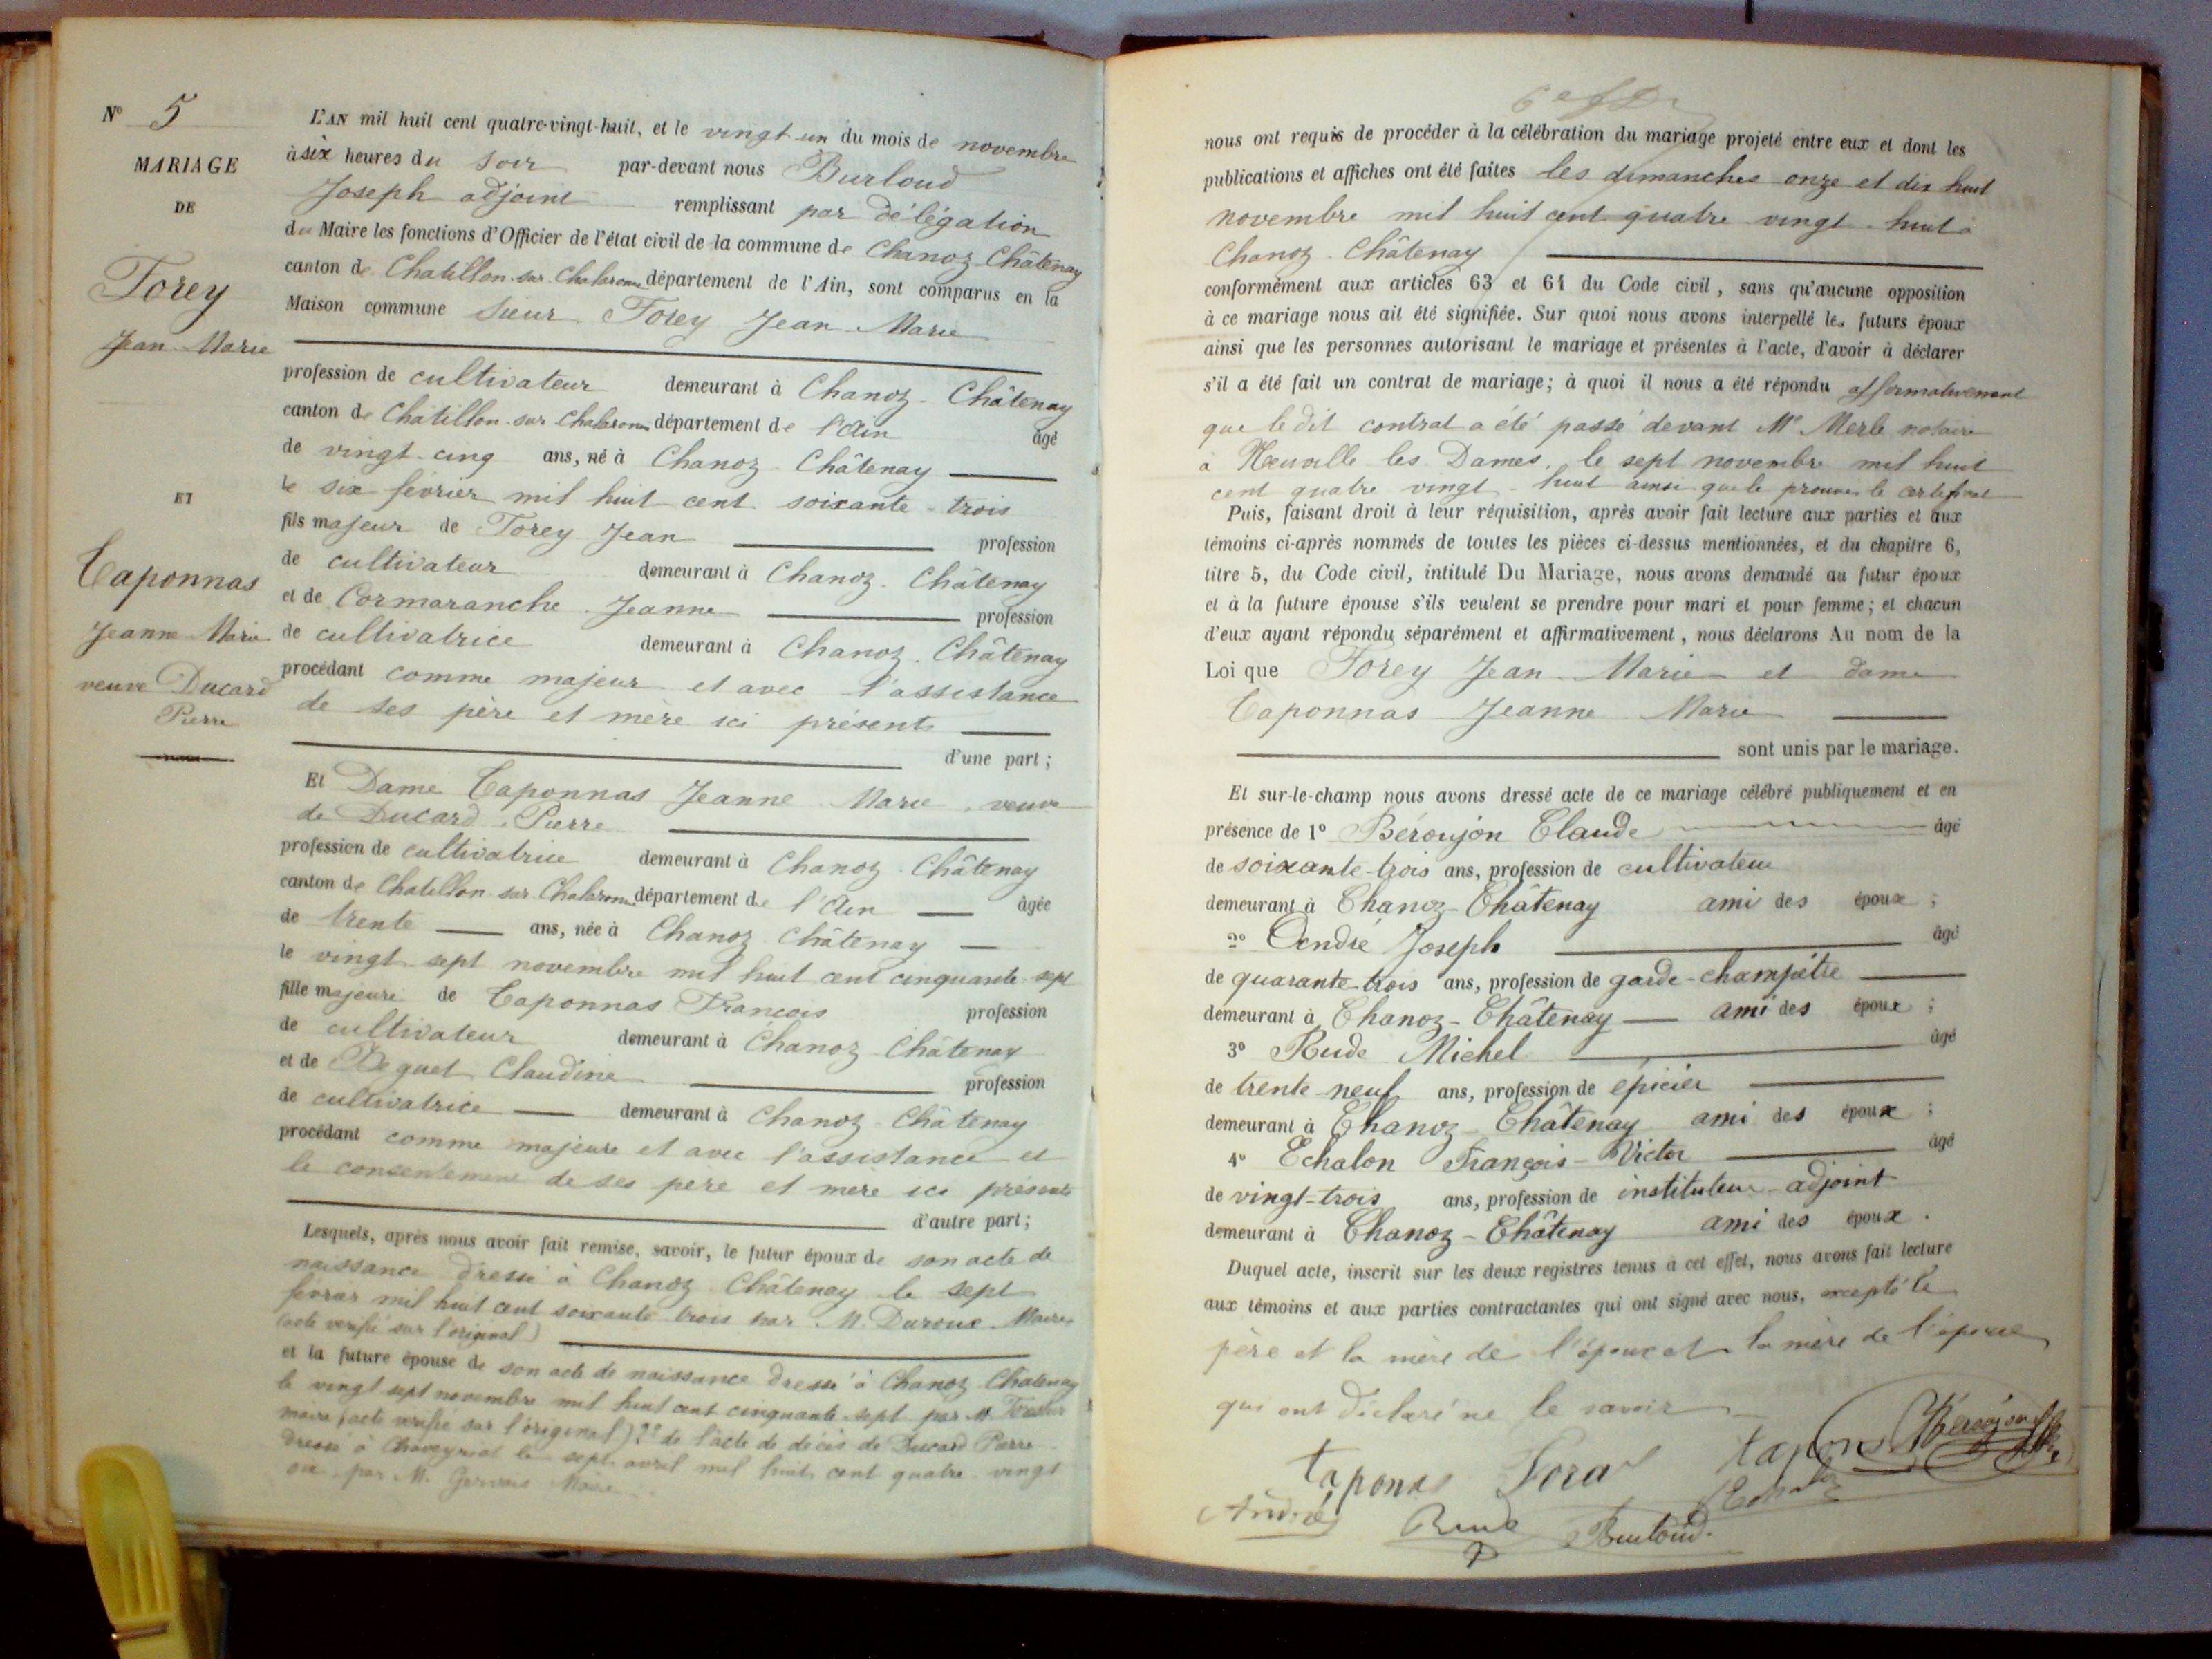 N° 5
MARIAGE
DE
Forey
Jean Marie
ET
Caponnas
Jeanne Marie
veuve Ducard
Pierre
L'AN mil huit cent quatre-vingt-huit, et le vingt-un du mois de novembre
à six heures du soir par-devant nous Burloud
Joseph adjoint remplissant par délégation
du Maire les fonctions d'Officier de l'état civil de la commune de Chanoz-Châtenay
canton de Chatillon-sur-Chalaronne département de l'Ain, sont comparus en la
Maison commune Sieur Forey Jean Marie
profession de cultivateur demeurant à Chanoz-Châtenay
canton de Châtillon-sur-Chalaronne département de l'Ain âgé
de vingt-cinq ans, né à Chanoz-Châtenay
le six février mil huit cent soixante-trois
fils majeur de Forey Jean profession
de cultivateur demeurant à Chanoz-Châtenay
et de Cormaranche Jeanne profession
de cultivatrice demeurant à Chanoz-Châtenay
procédant comme majeur et avec l'assistance
de ses père et mère ici présents
d'une part;
Et Dame Caponnas Jeanne Marie, veuve
de Ducard Pierre
profession de cultivatrice demeurant à Chanoz-Châtenay
canton de Chatillon-sur-Chalaronne département de l'Ain âgée
de trente ans, née à Chanoz-Châtenay
le vingt-sept novembre mil huit cent cinquante-sept
fille majeure de Caponnas François profession
de cultivateur demeurant à Chanoz-Châtenay
et de Béguet Claudine profession
de cultivatrice demeurant à Chanoz-Châtenay
procédant comme majeure et avec l'assistance et
le consentement de ses père et mère ici présents
d'autre part;
Lesquels, après nous avoir fait remise, savoir, le futur époux de son acte de
naissance dressé à Chanoz-Châtenay le sept
février mil huit cent soixante-trois par M. Duroux Maire
(acte vérifié sur l'original)
et la future épouse de son acte de naissance dressé à Chanoz-Châtenay
le vingt sept novembre mil huit cent cinquante-sept par M.
maire (acte vérifié sur l'original) 2° de l'acte de décès de Ducard Pierre
dressé à Chaveyriat le sept avril mil huit cent quatre-vingt
par M. Gervais Maire.
nous ont requis de procéder à la célébration du mariage projeté entre eux et dont les
publications et affiches ont été faites les dimanches onze et dix huit
novembre mil huit cent quatre-vingt-huit à
Chanoz-Châtenay
conformément aux articles 63 et 64 du Code civil, sans qu'aucune opposition
à ce mariage nous ait été signifiée. Sur quoi nous avons interpellé les futurs époux
ainsi que les personnes autorisant le mariage et présentes à l'acte, d'avoir à déclarer
s'il a été fait un contrat de mariage; à quoi il nous a été répondu affirmativement
que le dit contrat a été passé devant Me Merle notaire
à Neuville les Dames, le sept novembre mil huit
cent quatre vingt-huit ainsi que le prouve le certificat
Puis, faisant droit à leur réquisition, après avoir fait lecture aux parties et aux
témoins ci-après nommés de toutes les pièces ci-dessus mentionnées, et du chapitre 6,
titre 5, du Code civil, intitulé Du Mariage, nous avons demandé au futur époux
et à la future épouse s'ils veulent se prendre pour mari et pour femme; et chacun
d'eux ayant répondu séparément et affirmativement, nous déclarons Au nom de la
Loi que Forey Jean Marie et dame
Caponnas Jeanne Marie
sont unis par le mariage.
Et sur-le-champ nous avons dressé acte de ce mariage célébré publiquement et en
présence de 1° Béroujon Claude âgé
de soixante-trois ans, profession de cultivateur
demeurant à Chanoz-Châtenay ami des époux;
2° André Joseph âgé
de quarante-trois ans, profession de garde-champêtre
demeurant à Chanoz-Châtenay ami des époux;
3° Rude Michel âgé
de trente-neuf ans, profession de épicier
demeurant à Chanoz-Châtenay ami des époux;
4° Echalon François-Victor âgé
de vingt-trois ans, profession de instituteur-adjoint
demeurant à Chanoz-Châtenay ami des époux.
Duquel acte, inscrit sur les deux registres tenus à cet effet, nous avons fait lecture
aux témoins et aux parties contractantes qui ont signé avec nous, excepté le
père et la mère de l'époux et la mère de l'épouse
qui ont déclaré ne le savoir
taponas Forey tapon Béroujon
André Rude Burloud Echalon